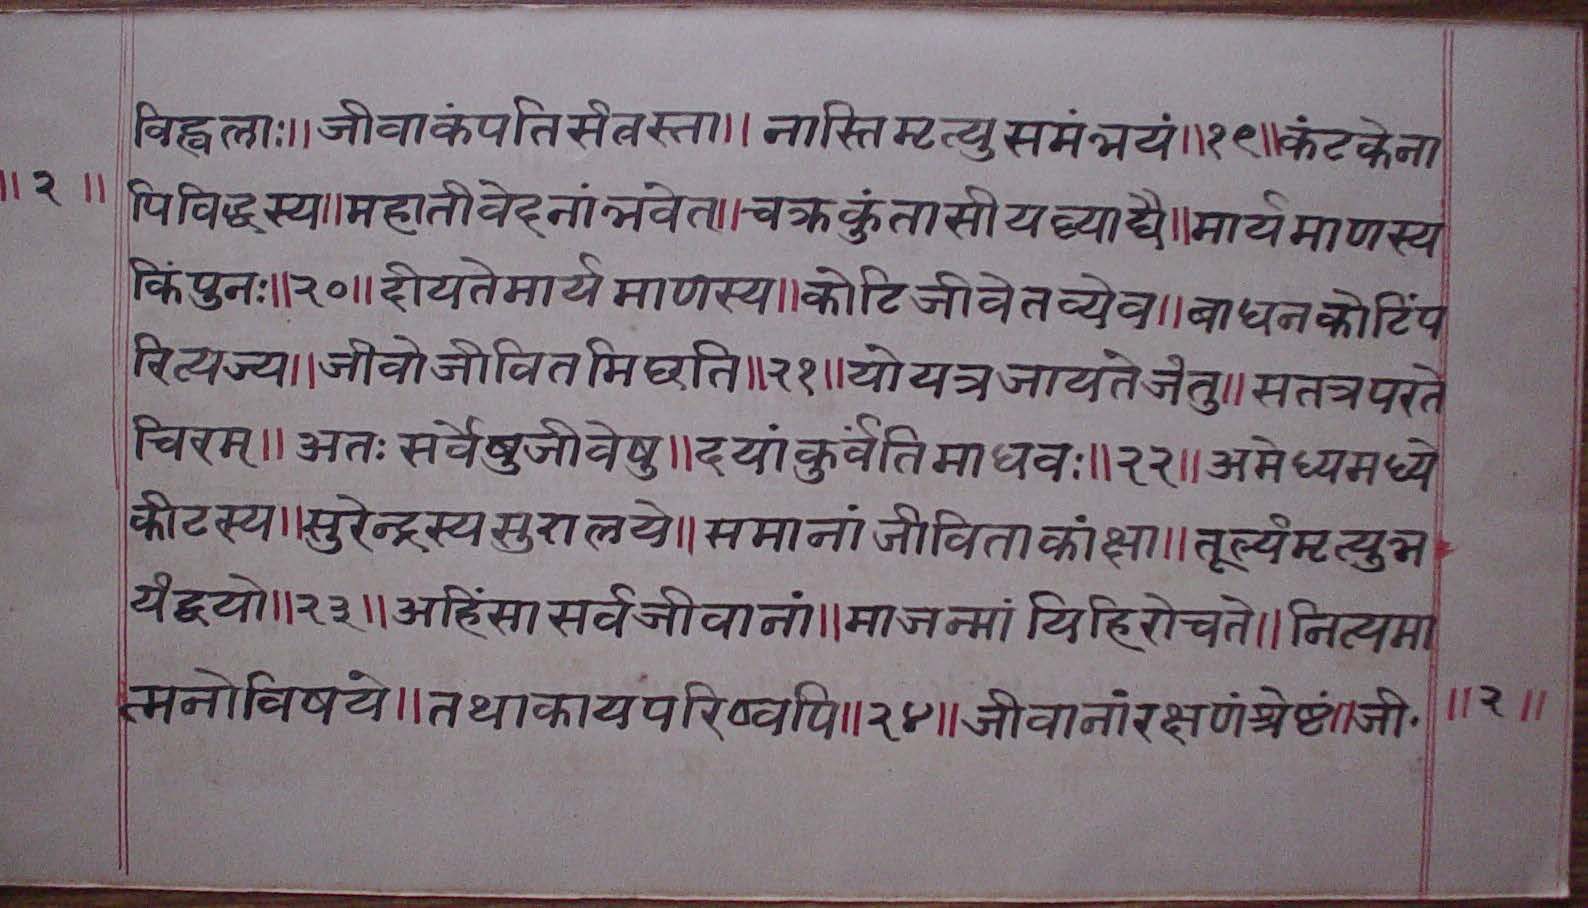 विह्वलाः॥ जीवाकंपतिसंत्रस्ता॥ नास्तिमृत्युसमंभयं॥१९॥कंटकेना
॥२॥
पिविद्धस्य॥महातीवेदनांभवेत॥चक्रकुंतासीयष्याद्यै॥मार्यमाणस्य
किंपुनः॥२०॥दीयतेमार्यमाणस्य॥कोटिजीवेतव्येव॥बाधनकोटिंप
रित्यज्य॥जीवोजीवितमिछति॥२१॥योयत्रजायतेजंतु॥सतत्रपरते
चिरम्॥ अतः सर्वेषुजीवेषु॥दयांकुर्वंतिमाधवः॥२२॥अमेध्यमध्ये
कीटस्य॥सुरेन्द्रस्यसुरालये॥समानांजीविताकांक्षा॥तूल्यंमृत्युभ
यंद्वयो॥२३॥अहिंसासर्वजीवानां॥माजन्मांयिहिरोचते॥नित्यमा
त्मनोविषये॥तथाकायपरिष्वपि॥२४॥जीवानांरक्षणंश्रेष्टं॥जी·
॥२॥